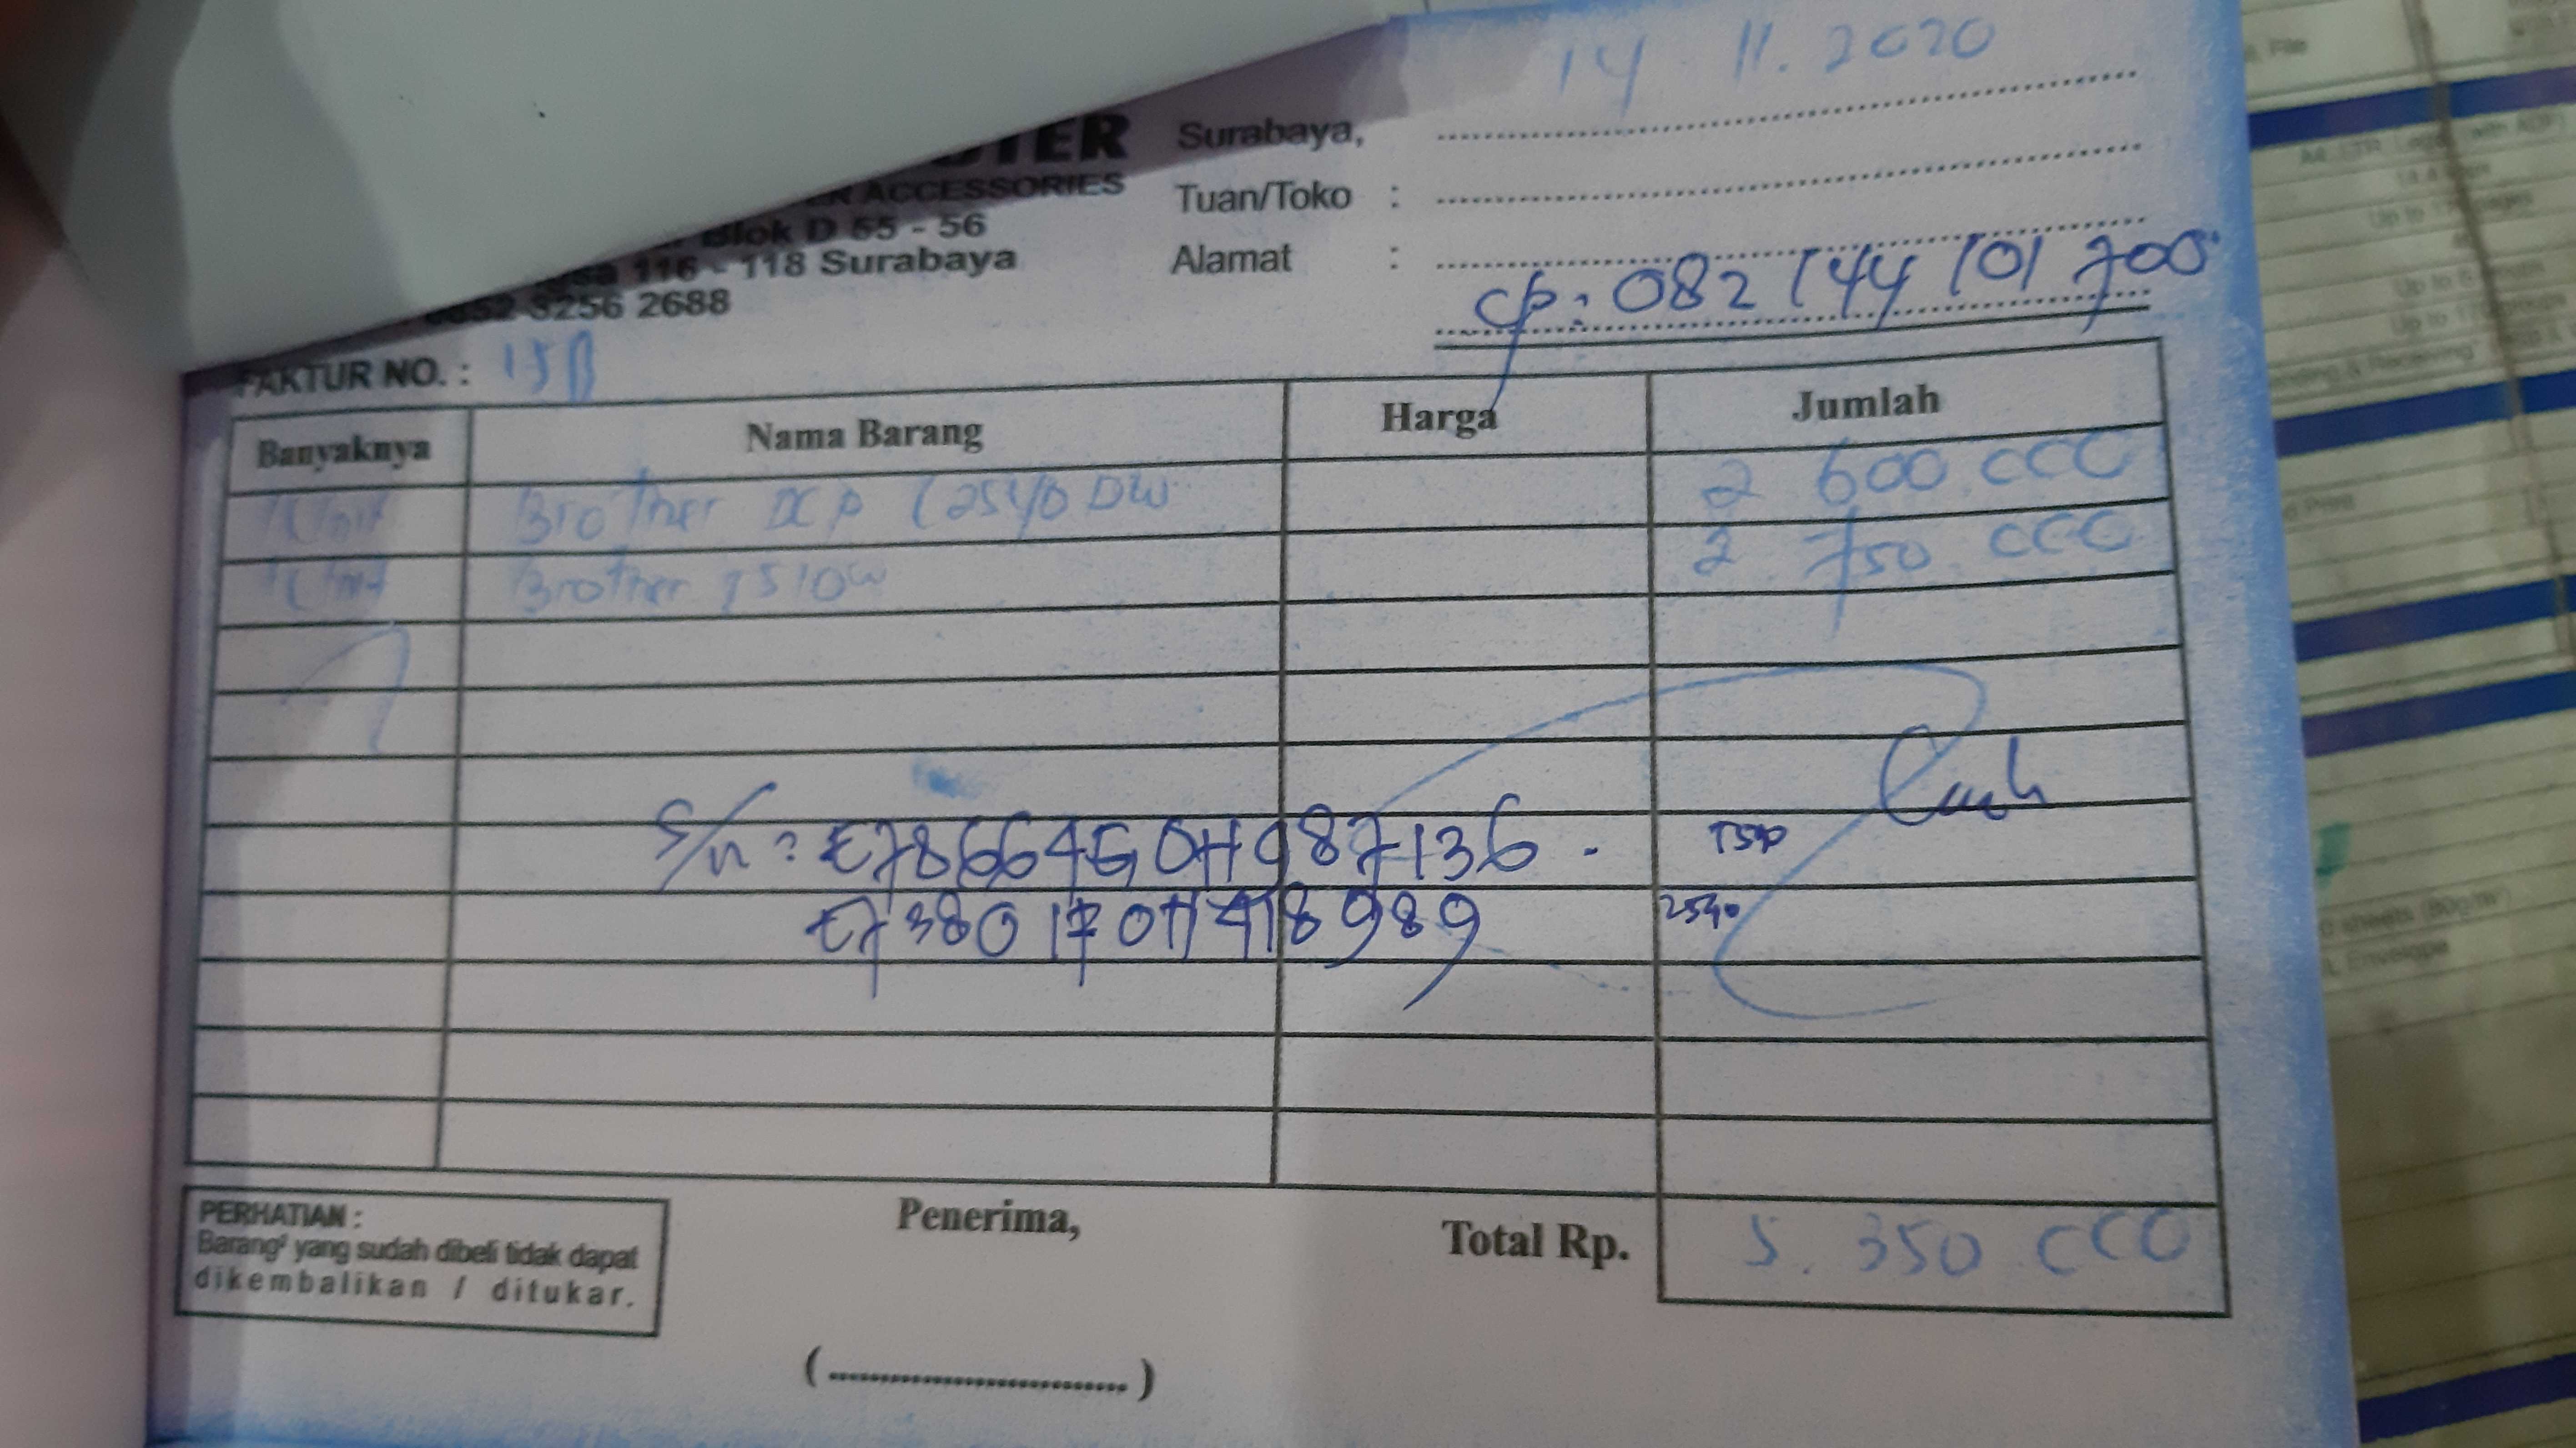 14 11. 2020
Surabaya,
ACCESSORIES
Tuan/Toko :
Blok D 55 - 56
116 - 118 Surabaya
Alamat :
3256 2688
cp: 082 144 101 700
FAKTUR NO. :
Banyaknya Nama Barang Harga Jumlah
1 Unit Brother DCP L2540 DW 2 600 000
1 Unit Brother T510W 2 750 000
Cash
S/N : E78664G0H987136 . T510
E73801701418989 2540
PERHATIAN :
Barang² yang sudah dibeli tidak dapat
dikembalikan / ditukar.
Penerima,
Total Rp. 5. 350 000
(..............................)